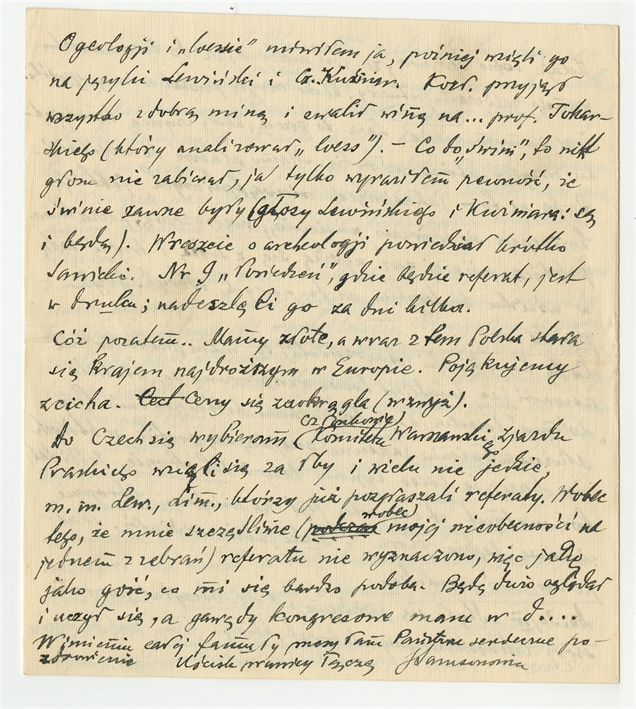 O geologji i „loessie" mówiłem ja, później wzięli go
na języki Lewiński i Cz. Kuźniar. Kozł. przyjął
wszystko z dobrą miną i zwalił winę na... prof. Tokar-
skiego (który analizował „loess"). – Co do „świni", to nikt
głosu nie zabierał, ja tylko wyraziłem pewność, że
świnie zawsze były (głosy Lewińskiego i Kuźniara: są
i będą). Wreszcie o archeologji powiedział krótko
Sawicki. Nr 9 „Posiedzeń", gdzie będzie referat, jest
w druku; nadeszlę Ci go za dni kilka.
Cóż pozatem.. Mamy złote, a wraz z tem Polska stała
się krajem najdroższym w Europie. Pojękujemy
zcicha. Ceny się zaokrągla (wzwyż).
Do Czech się wybieram (Komitetu Warszawski Zjazdu
Praskiego wzięli się za łby i wielu nie jedzie,
m. in. Lew., Lim., którzy już pozgłaszali referaty. Wobec
tego, że mnie szczęśliwie (wobec mojej nieobecności na
jednem z zebrań) referatu nie wyznaczono, więc jadę
jako gość, co mi się bardzo podoba. Będę dużo oglądał
i uczył się, a gawędy kongresowe mam w d....
W imieniu całej familji przesyłam Państwu serdeczne po-
zdrowienia Uścisk prawicy łączę Samsonowicz